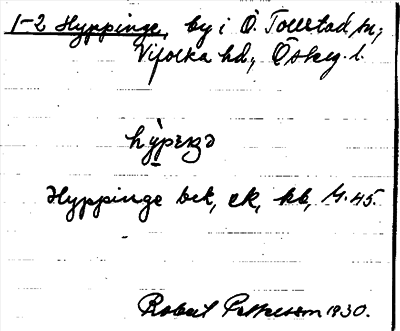 1-2 Hyppinge, by i Ö. Tollstad sn,
Vifolka hd, Östg. l.
hy̆pɪŋə
Hyppinge bet, ek, kb, M. 45.
Robert Pettersson 1930.